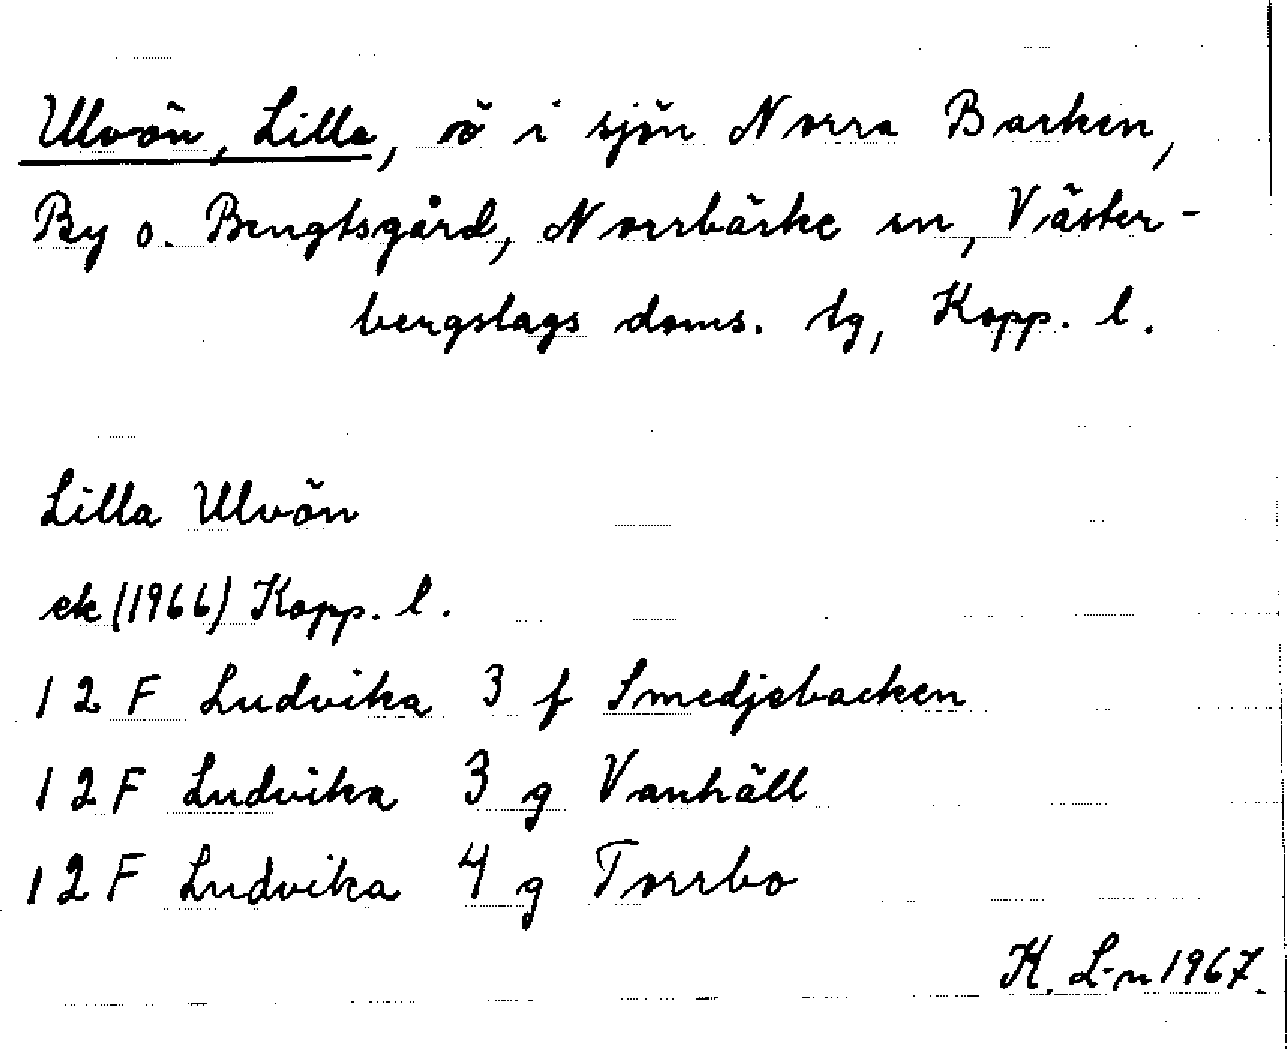 Ulvön, Lilla, ö i sjön Norra Barken,
By o. Bengtsgård, Norrbärke sn, Väster-
bergslags doms. tg, Kopp. l.
Lilla Ulvön
ek (1966) Kopp. l.
12 F Ludvika 3 f Smedjebacken
12 F Ludvika 3 g Vanhäll
12 F Ludvika 4 g Torrbo
K. L-n 1967.